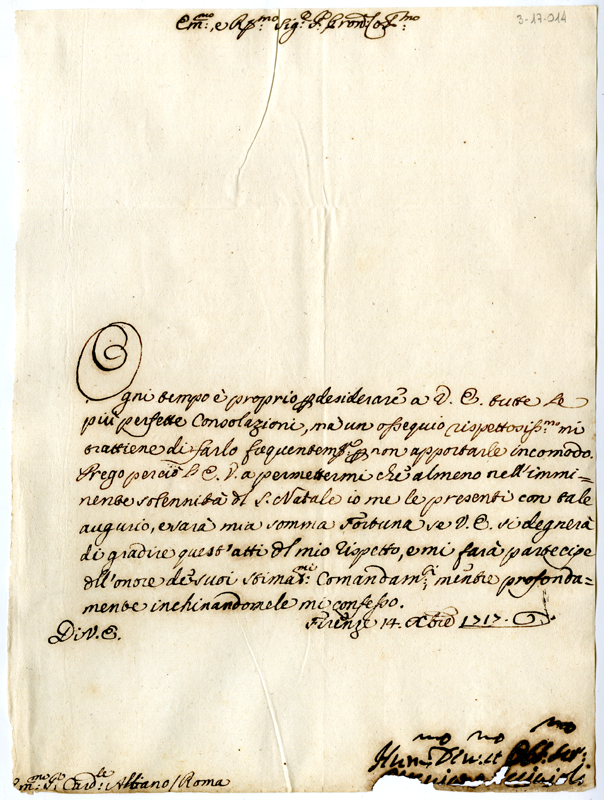 3-17-014
Em:mo, e Rp:mo Sig:e P.ron Col:mo
Ogni tempo è proprio p desiderare a V. E. tutte le
più perfette Consolazioni, ma un ossequio rispettosiss:mo mi
trattiene di farlo frequentem:te p non apportarle incomodo.
Prego perciò l'E. V. a permettermi che almeno nell'immi=
nente solennità di S. Natale io me le presenti con tale
augurio, e sarà mia somma Fortuna se V. E. si degnerà
di gradire quest'atti del mio rispetto, e mi farà partecipe
dell'onore de suoi stimat:mi Comandam:ti mentre profonda=
mente inchinandomele mi confesso.
Firenze 14. Xbre 1717.
Di V. E.
Hum:mo Dev:mo et Obb:mo Ser:
Em:mo S. Card:le Albano / Roma